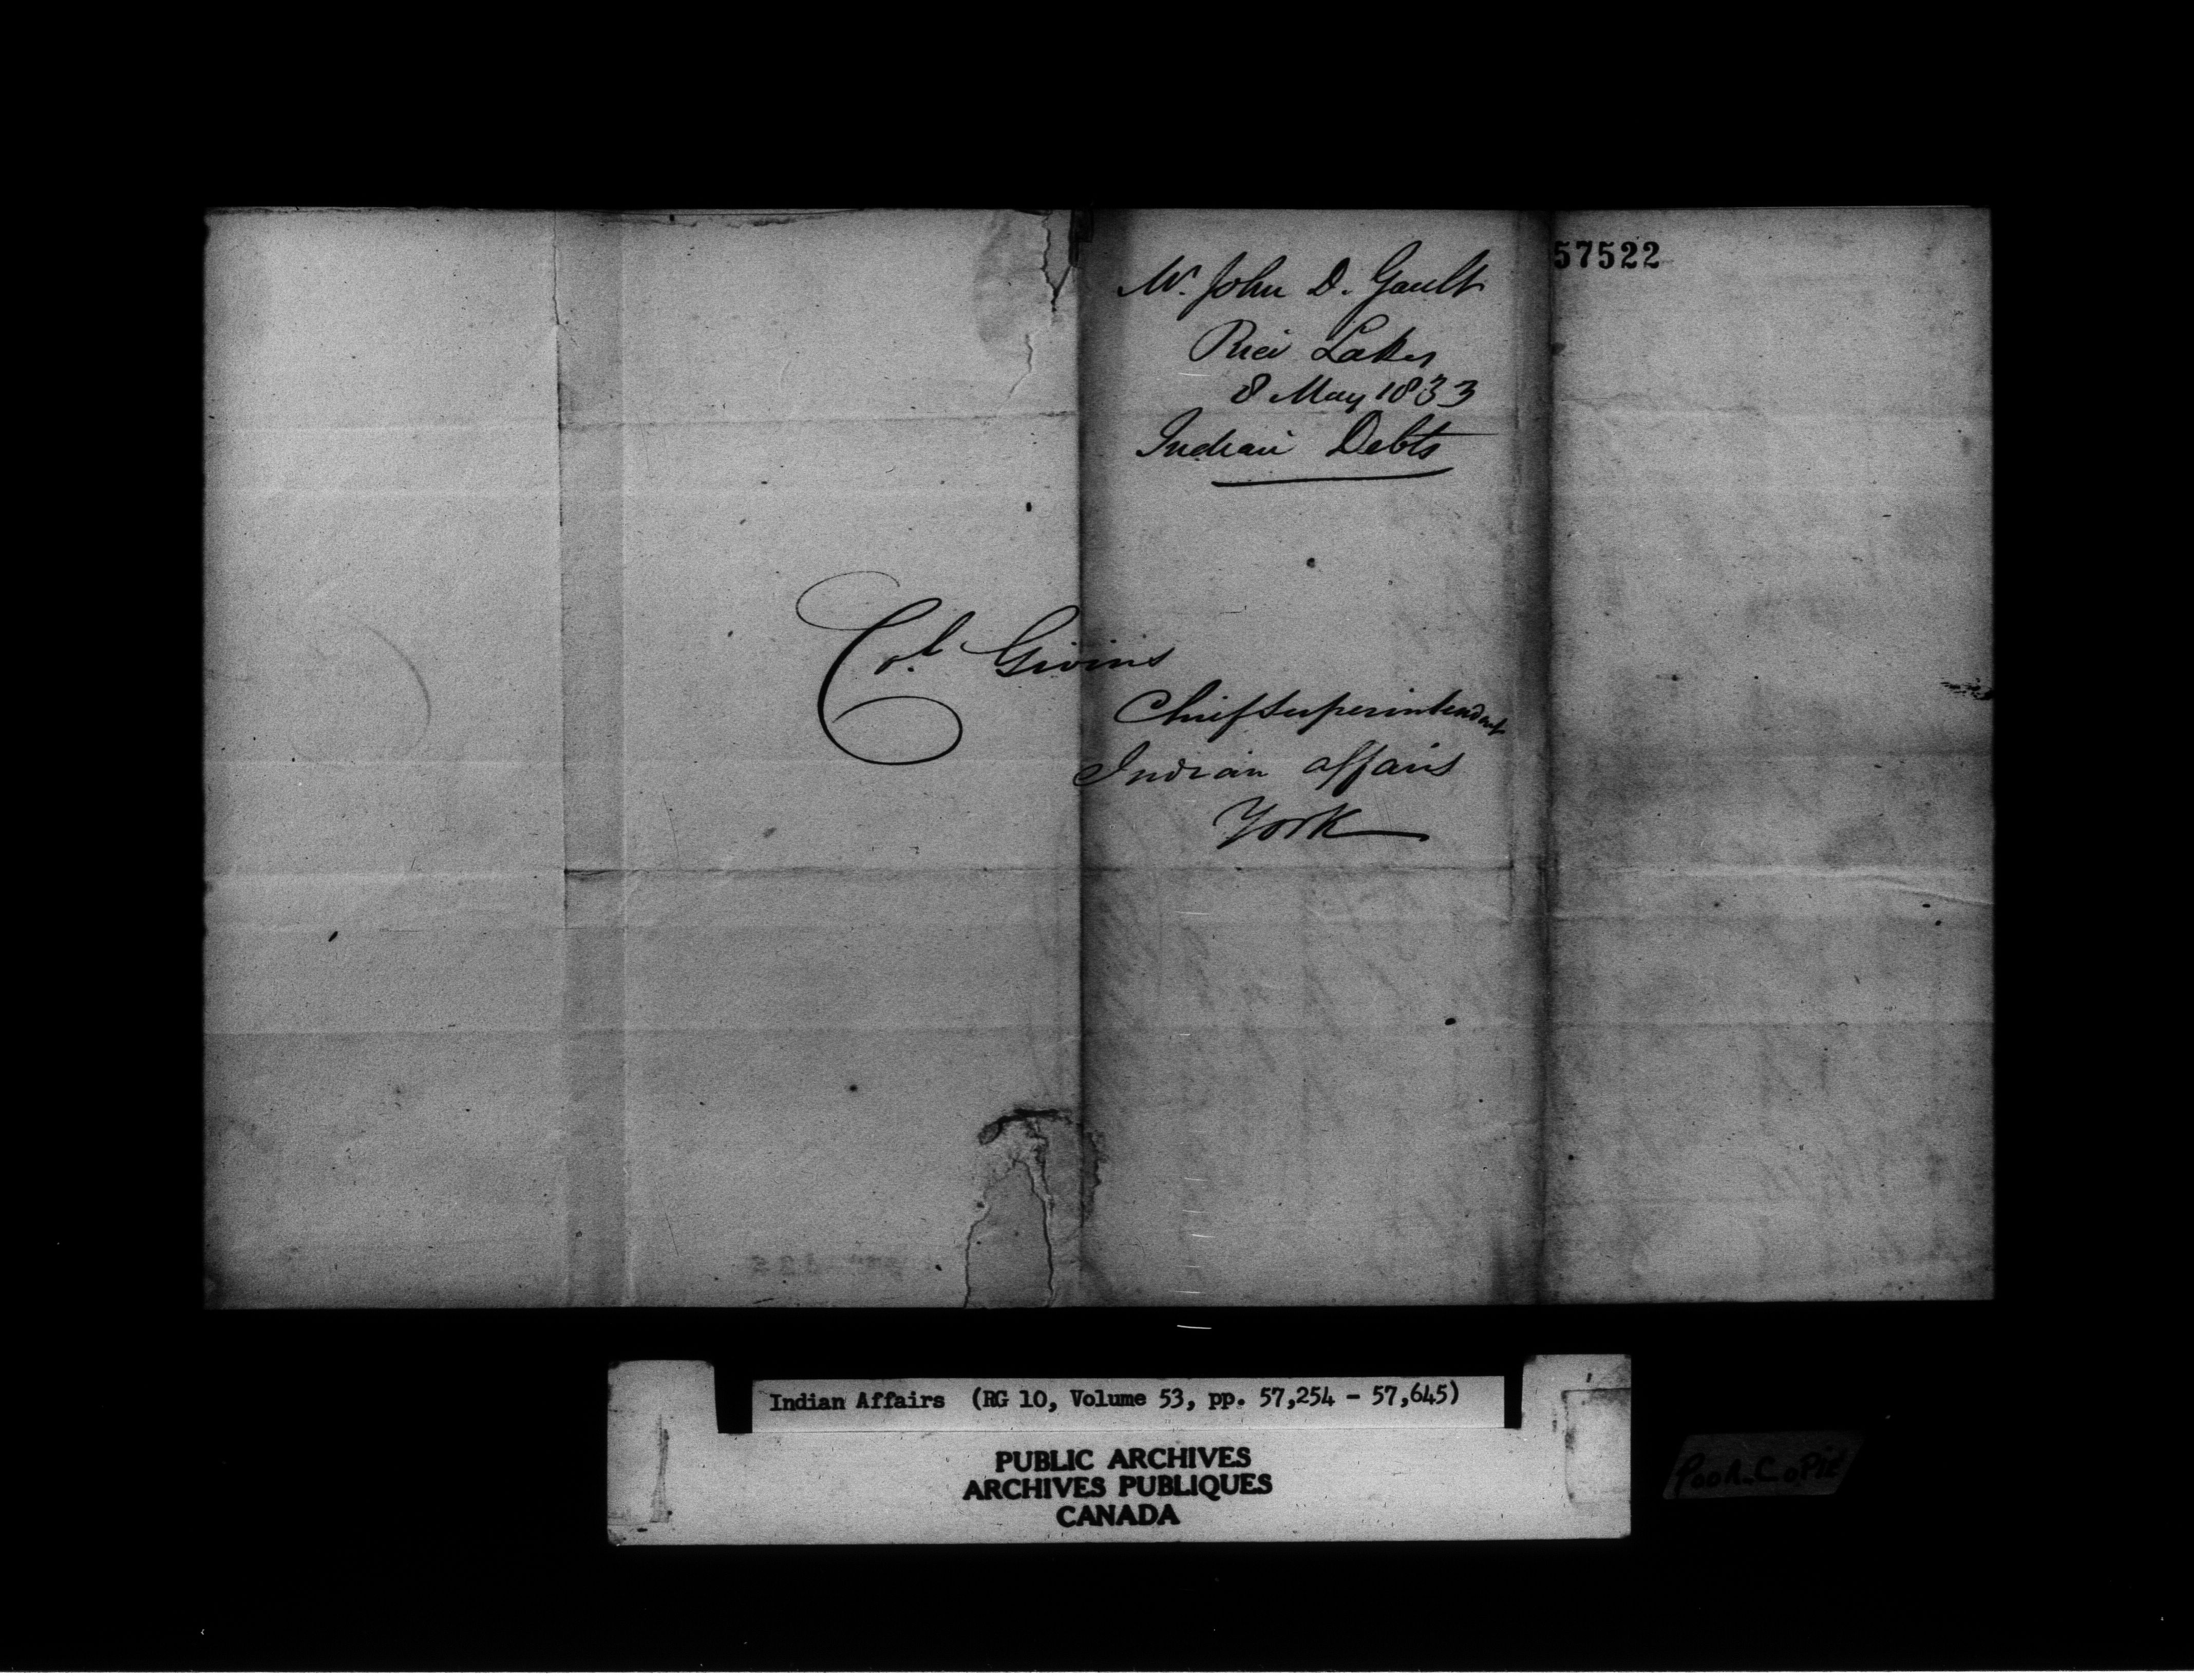 57522
Mr. John D. Gault
Rice Lake
8 May 1833
Indian Debts
Col. Givins
Chief Superintendent
Indian affairs
York
Indian Affairs (RG 10, Volume 53, pp. 57,254 - 57,645)
PUBLIC ARCHIVES
ARCHIVES PUBLIQUES
CANADA
POOR COPIE